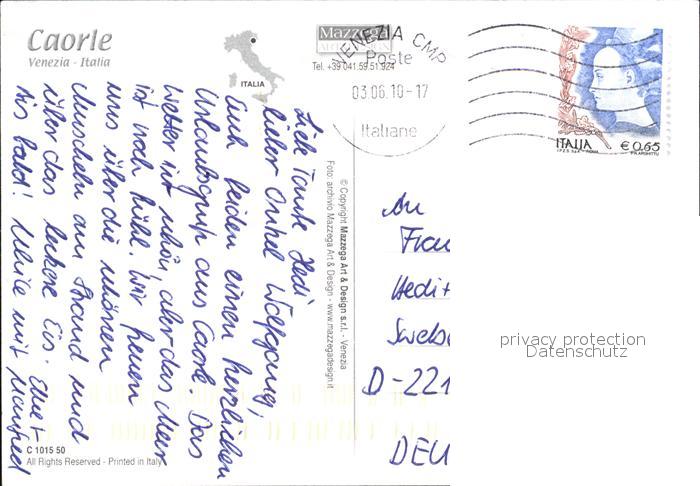 Caorle
Venezia - Italia
ITALIA
Mazzega
Tel. +39 041.59.51.924
VENEZIA CMP
Poste
03.06.10-17
Italiane
ITALIA
€ 0,65
I.P.Z.S. S.p.A. - ROMA
Liebe Tante Hedi
lieber Onkel Wolfgang,
Euch beiden einen herzlichen
Urlaubsgruß aus Caorle. Das
Wetter ist schön, aber das Meer
ist noch kühl. Wir freuen
uns über die schönen
Muscheln am Strand und
über das leckere Eis.
bis bald! Ulrike mit Manfred
© Copyright Mazzega Art & Design s.r.l. - Venezia
Foto: archivio Mazzega Art & Design - www.mazzegadesign.it
An
Hedi +
D-221
DEU
privacy protection
Datenschutz
C 1015 50
All Rights Reserved - Printed in Italy